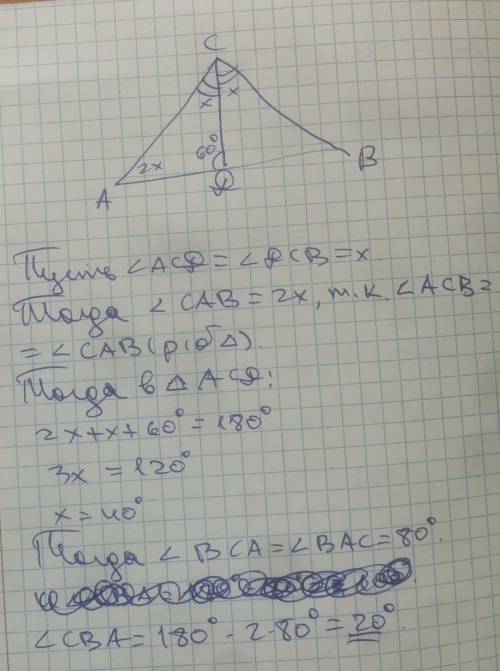 C
x x
60°
2x
A
D
B
Пусть ∠ACD = ∠DCB = x.
Тогда ∠CAB = 2x, т.к. ∠ACB =
= ∠CAB (р/б △).
Тогда в △ACD:
2x + x + 60° = 180°
3x = 120°
x = 40°
Тогда ∠BCA = ∠BAC = 80°.
∠CBA = 180° - 2·80° = 20°.